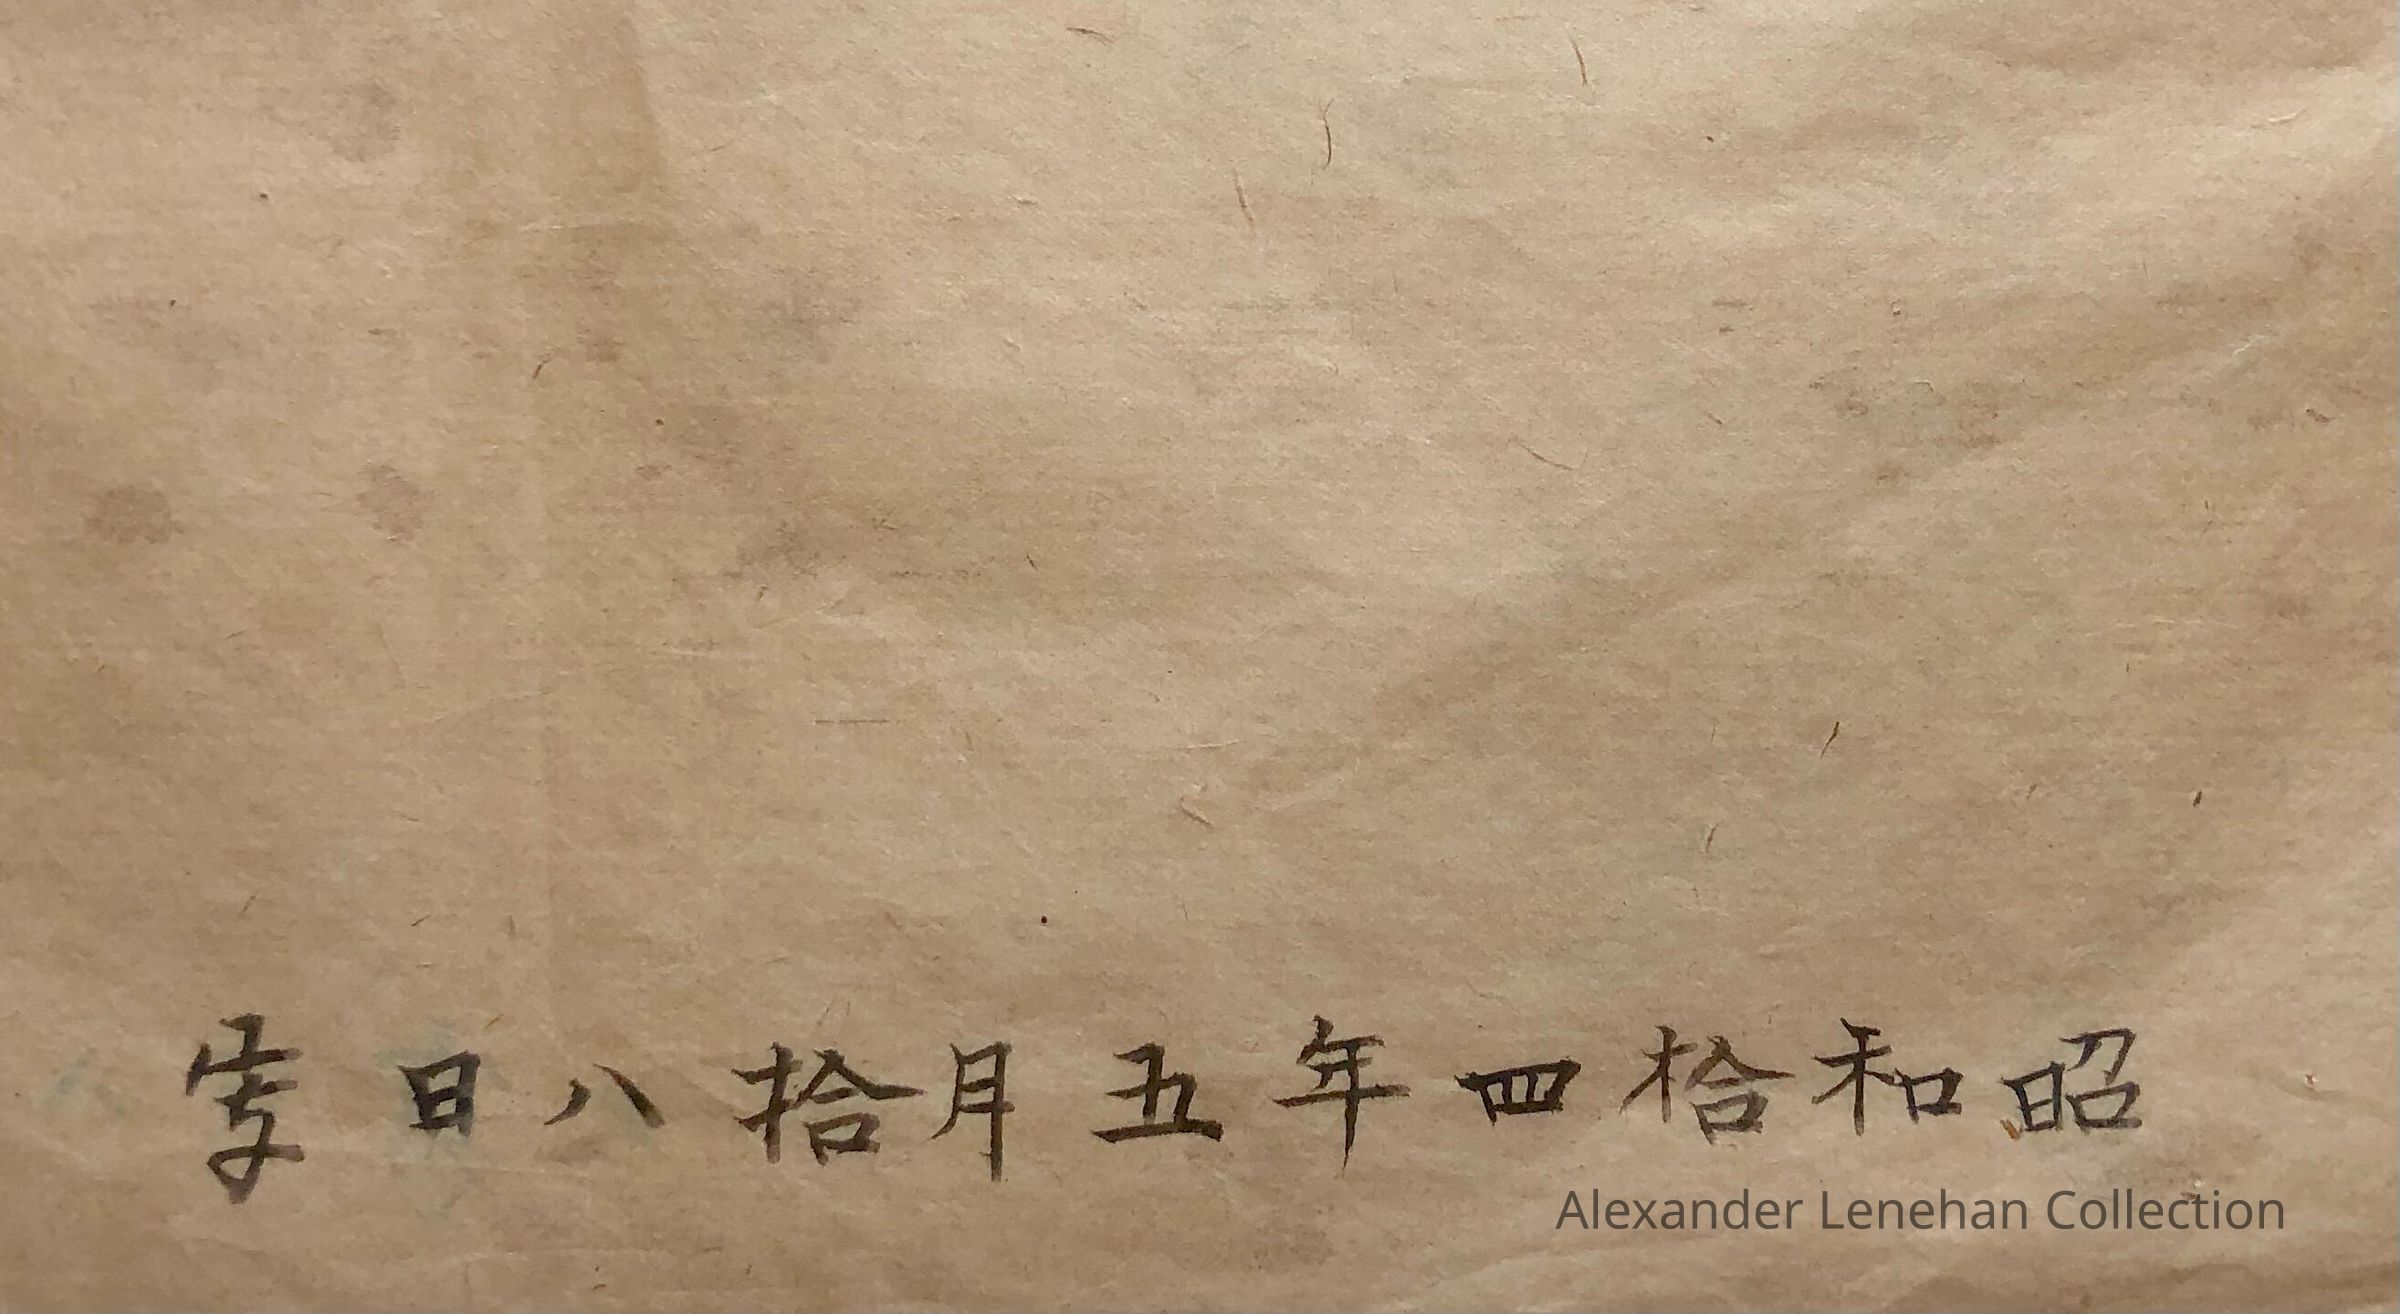 昭和拾四年五月拾八日写
Alexander Lenehan Collection